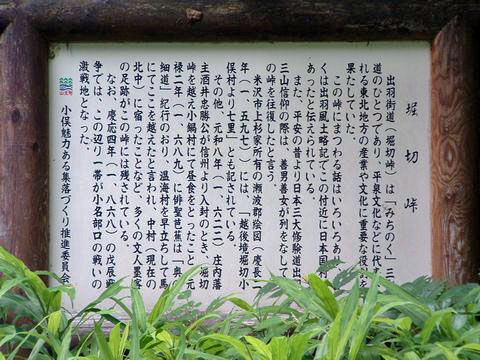 堀切峠
出羽街道(堀切峠)は「みちのく」三
道のひとつであり、平泉文化などに代表
れる東北地方の産業や文化に重要な役割を
果たしていた。
この峠にまつわる話はいろいろあ
くは出羽風土略記でこの付近に日本国
あったと伝えられている。
また、平安の昔より日本三大修験道出
三山信仰の際は、善男善女が列をなして
の峠を往復したと言う。
米沢市上杉家所有の瀬波郡絵図(慶長二
年(一、五九七))には、「越後境堀切小
俣村より七里」とも記されている。
その他、元和八年(一、六二二)庄内藩
主酒井忠勝公が信州より入封のとき、堀切
峠を越え小鍋村にて昼食をとったこと、元
禄二年(一、六八九)に俳聖芭蕉は「奥の
細道」紀行のおり、温海村を早立ちして馬
にてここを越えたと言われ、中村(現在の
北中)に宿ったことなど、多くの文人墨客
の足跡がこの峠には残されている。
なお、慶応四年(一、八六八)の戊辰戦
争では、この辺り一帯が小名部口の戦いの
激戦地となった。
小俣魅力ある集落づくり推進委員会